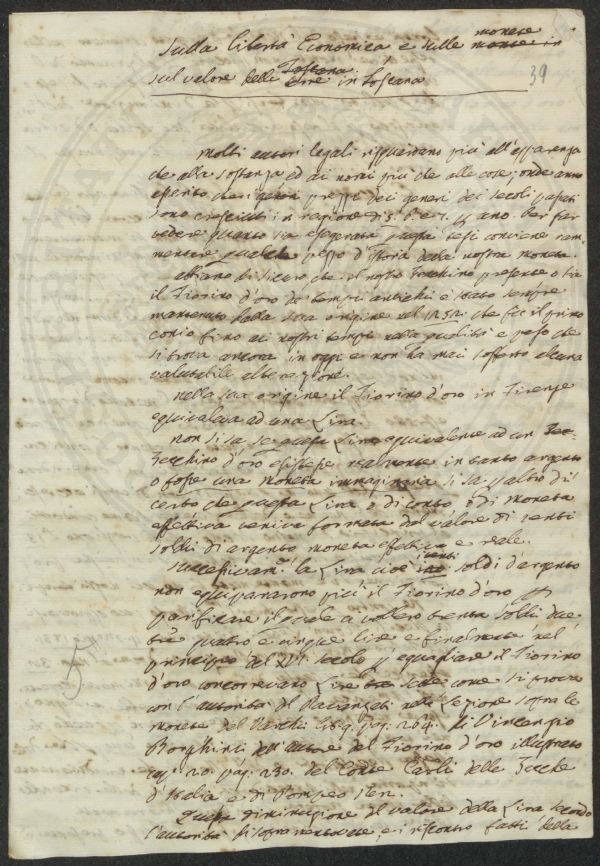 Sulla libertà Economica e sulle monete in
sul valore delle Lire in Toscana
39
Molti autori legali risguardano più all'apparenza
che alla sostanza ed ai nomi più che alle cose; onde anno
asserito che i generi prezzi dei generi dei secoli passati
sono cresciuti in ragione di 3. p e per ano. Per far
vedere quanto sia esagerata questa tesi conviene ram-
mentare qualche pezzo d'istoria della nostra moneta.
Abbiano di sicuro che il nostro Zecchino presente o sia
il Fiorino d'oro da tempi antichi è stato sempre
mantenuto dalla sua origine nel 1252. che fu il primo
conio fino ai nostri tempi nella qualità e peso che
si trova ancora in oggi e non ha mai sofferto alcuna
valutabile alterazione.
Nella sua origine il Fiorino d'oro in Firenze
equivaleva ad una Lira.
Non si sa se questa Lira equivalente ad un
Zecchino d'oro esistesse realmente in tanto argento
o fosse una moneta immaginaria si sa p altro di
certo che questa Lira o di conto o di moneta
effettiva veniva formata dal valore di venti
soldi di argento moneta effettiva e reale.
Successivam.e la Lira cioè i venti soldi d'argento
non equipararono più il Fiorino d'oro p
parificare il quale ci vollero trenta soldi due
tre quattro e cinque lire e finalmente nel
principio del XVI secolo p eguagliare il Fiorino
d'oro concorrevano Lire tra sette come si prova
con l'autorità del Davanzati nella Lezione sopra le
monete del Varchi lib. 9. pag. 264. di Vincenzio
Borghini dell'autore del Fiorino d'oro illustrato
cap. 20. pag. 230. del Conte Carli delle Zecche
d'Italia e di Pompeo Neri.
5
Questa diminuzione del valore della Lira secondo
l'autorità di sopra mentovate, e i riscontri fatti della